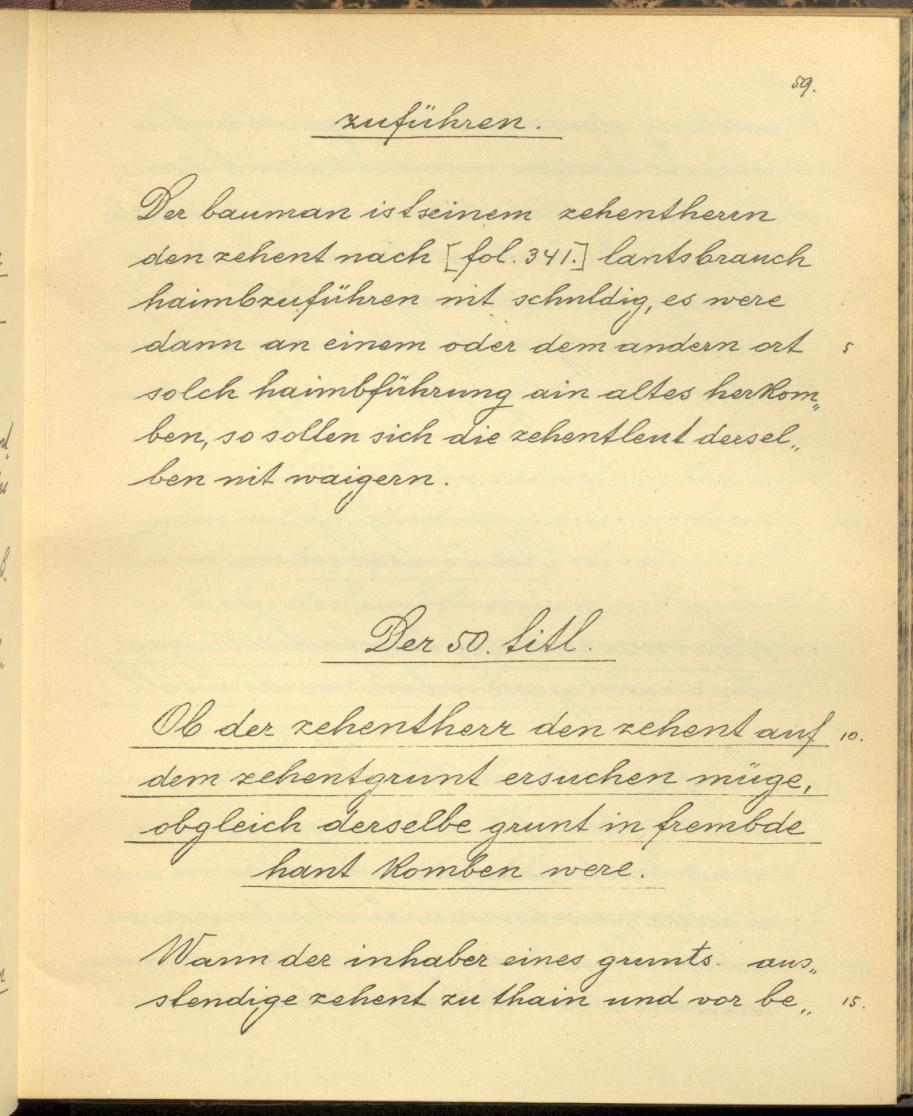 59.
zuführen.
Der bauman ist seinem zehentherrn
den zehent nach [fol. 341.] lantsbrauch
haimbzuführen nit schuldig, es were
dann an einem oder dem andern ort 5
solch haimbführung ain altes herkom„
ben, so sollen sich die zehentleut dersel„
ben nit waigern.
Der 50. titl.
Ob der zehentherr den zehent auf 10.
dem zehentgrunt ersuchen müge,
obgleich derselbe grunt in frembde
hant komben were.
Wann der inhaber eines grunts aus„
stendige zehent zu thain und vor be„ 15.